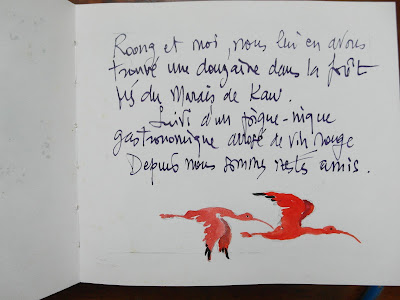 Roong et moi, nous lui en avons
trouvé une douzaine dans la forêt
près du Marais de Kaw.
Suivi d'un pique-nique
gastronomique arrosé de vin rouge
Depuis nous sommes restés amis.